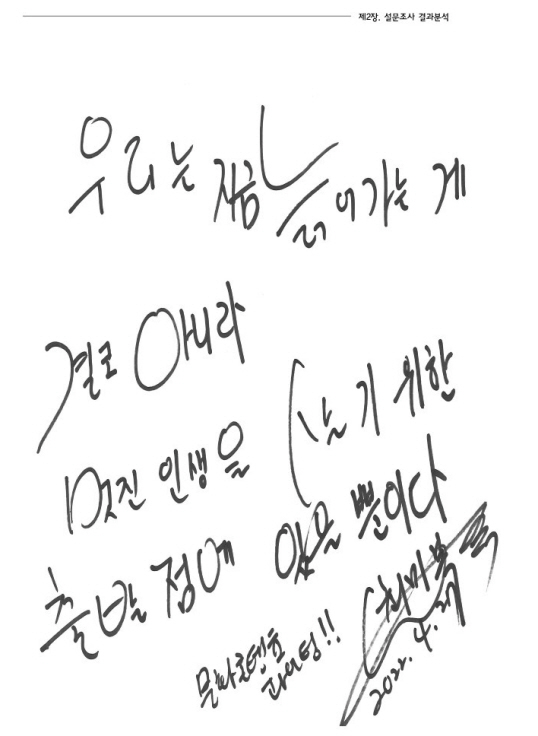 제2장. 설문조사 결과분석
우리는 지금 늙어가는 게
결코 아니라
멋진 인생을 사는기 위한
출발점에 있을 뿐이다
화이팅!!
2022. 4. 27